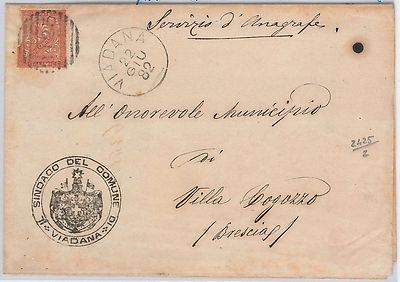 Servizio d'Anagrafe
VIADANA
22
GIU
82
All'Onorevole Municipio
di
Villa Cogozzo
(Brescia)
IL SINDACO DEL COMUNE DI
VIADANA
2425
2